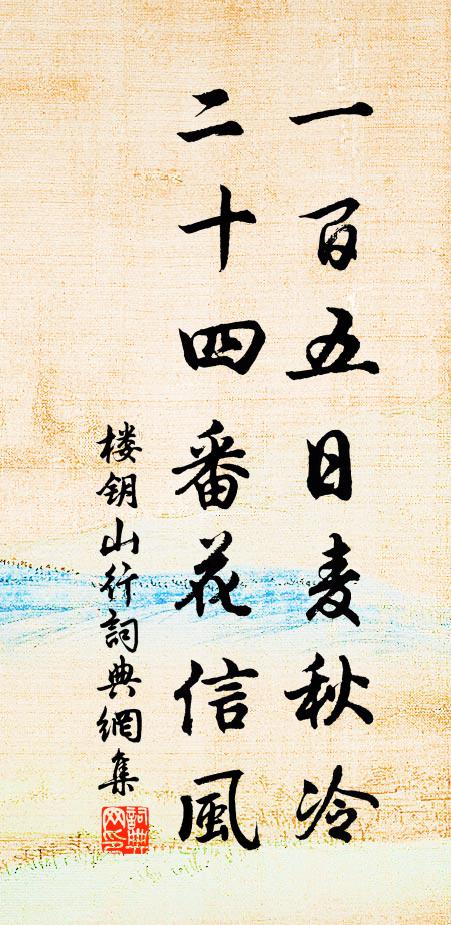 一百五日麦秋冷
二十四番花信風
楼钥山行詞典網集
詞典
网印